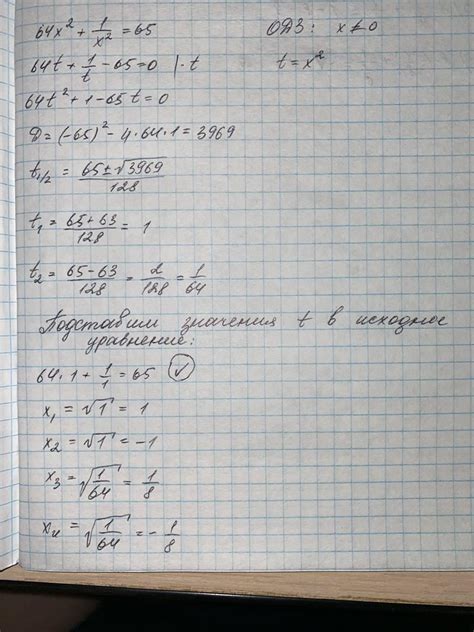 64x² + 1/x² = 65
ОДЗ: x ≠ 0
64t + 1/t - 65 = 0 | · t
t = x²
64t² + 1 - 65t = 0
D = (-65)² - 4 · 64 · 1 = 3969
t₁/₂ = (65 ± √3969)/128
t₁ = (65 + 63)/128 = 1
t₂ = (65 - 63)/128 = 2/128 = 1/64
Подставим значения t в исходное
уравнение:
64 · 1 + 1/1 = 65 ✓
x₁ = √1 = 1
x₂ = √1 = -1
x₃ = √(1/64) = 1/8
x₄ = √(1/64) = -1/8